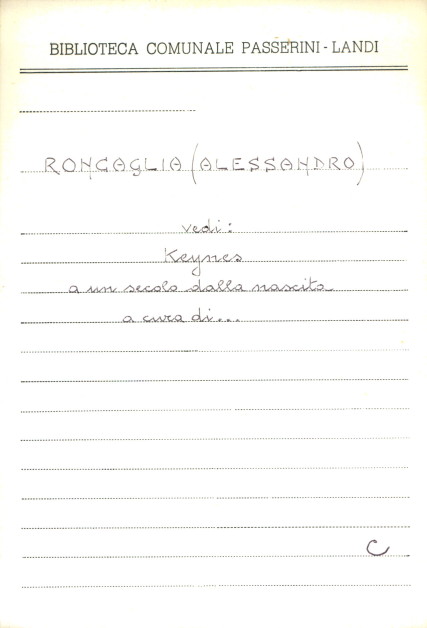 BIBLIOTECA COMUNALE PASSERINI - LANDI
RONCAGLIA (ALESSANDRO)
vedi:
Keynes
a un secolo dalla nascita
a cura di...
C